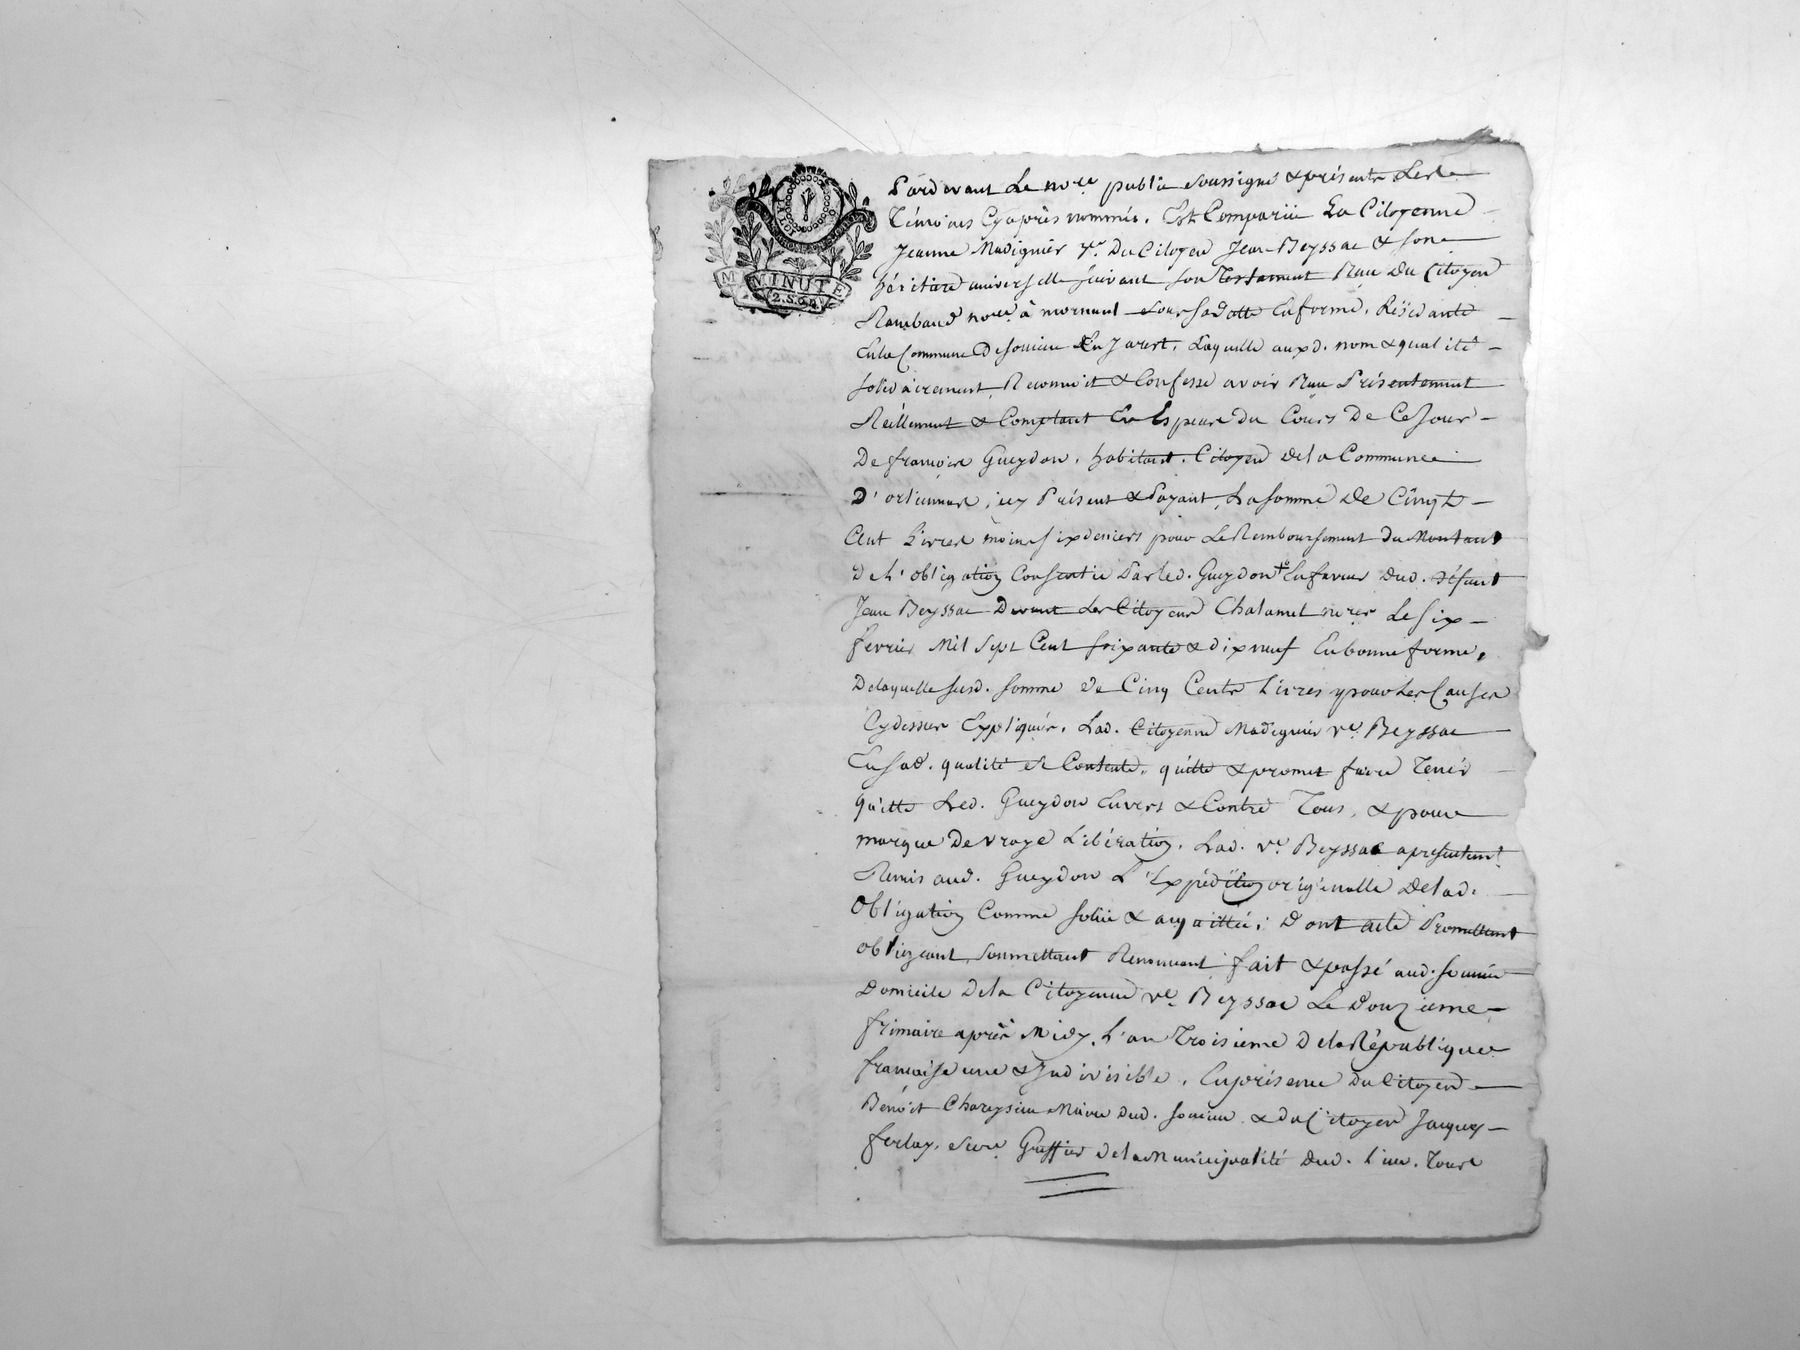 MINUTE
2. S. 6 d.
Pardevant Le no.re public soussigné & présents Les
Témoins Cyaprès nommés. Est Comparüe La Citoyenne
Jeanne Madignier v.e Du Citoyen Jean Beyssac & son
héritiere universelle suivant son Testament Reçu Du Citoyen
Rambaud no.re à mornant sous sa datte En forme, Résidante
En la Commune De soucieu En Jarest, Laquelle auxd. nom & qualité
solidairement, Reconnoit & Confesse avoir Reçu Présentement
Réellement & Comptant En Espece du Cours De Ce Jour
De françois Gueydon, habitant, Citoyen de la Commune
D'orlienas, icy Présent & Payant, La somme de Cinq
Cent Livres moins six deniers pour Le Remboursement du Montant
De L'obligation Consentie Par led. Gueydon En faveur dud. défunt
Jean Beyssac Devant Les Citoyens Chalamel no.res Le six
fevrier Mil Sept Cent soixante & dix neuf En bonne forme,
De laquelle susd. somme de Cinq Cents Livres pour Les Causes
Cydessus Expliquées, Lad. Citoyenne Madignier v.e Beyssac
En sad. qualité Contente, quitte & promet faire Tenir
quitte Led. Gueydon Envers & Contre Tous, & pour
marque De vraye Libération, Lad. v.e Beyssac a présentem.t
Remis aud. Gueydon L'Expédition originelle De lad.
obligation Comme solüe & acquittée; Dont acte Promettant
obligeant, soumettant Renonçant fait & passé aud. soucieu
Domicile De la Citoyenne v.e Beyssac Le Douzieme
frimaire après Midy, L'an Troisieme De la République
françoise une & Indivisible, En présence Du Citoyen
Benoit Charezieu Maire dud. soucieu & du Citoyen Jacques
ferlay, secre. Greffier De la Municipalité dud. Lieu, Tous